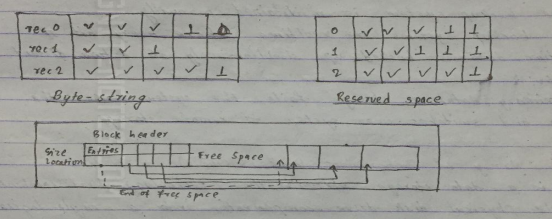 rec 0 ✓ ✓ ✓ ⊥
rec 1 ✓ ✓ ⊥
rec 2 ✓ ✓ ✓ ✓ ⊥
Byte-string
0 ✓ ✓ ✓ ⊥ ⊥
1 ✓ ✓ ⊥ ⊥ ⊥
2 ✓ ✓ ✓ ✓ ⊥
Reserved space
Block header
Size
Location
Entries
Free Space
End of free space